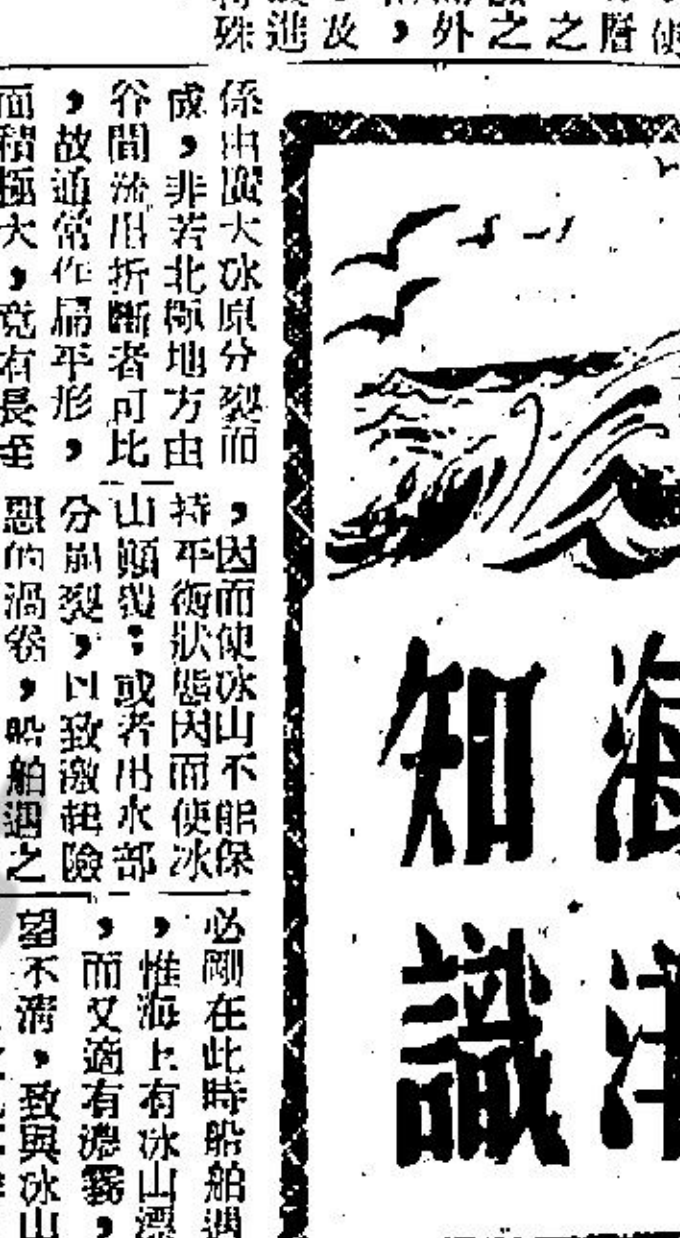 殊進及，外之之層使
海洋
知識
係由廣大冰原分裂而
成，非若北極地方由
谷間流出折斷者可比
，故通常作扁平形，
面積極大，竟有長至
，因而使冰山不能保
持平衡狀態因而使冰
山顛覆；或者出水部
分崩裂，以致激起險
惡的渦卷，船舶遇之
必剛在此時船舶遇
，惟海上有冰山漂
，而又適有濃霧，
望不清，致與冰山